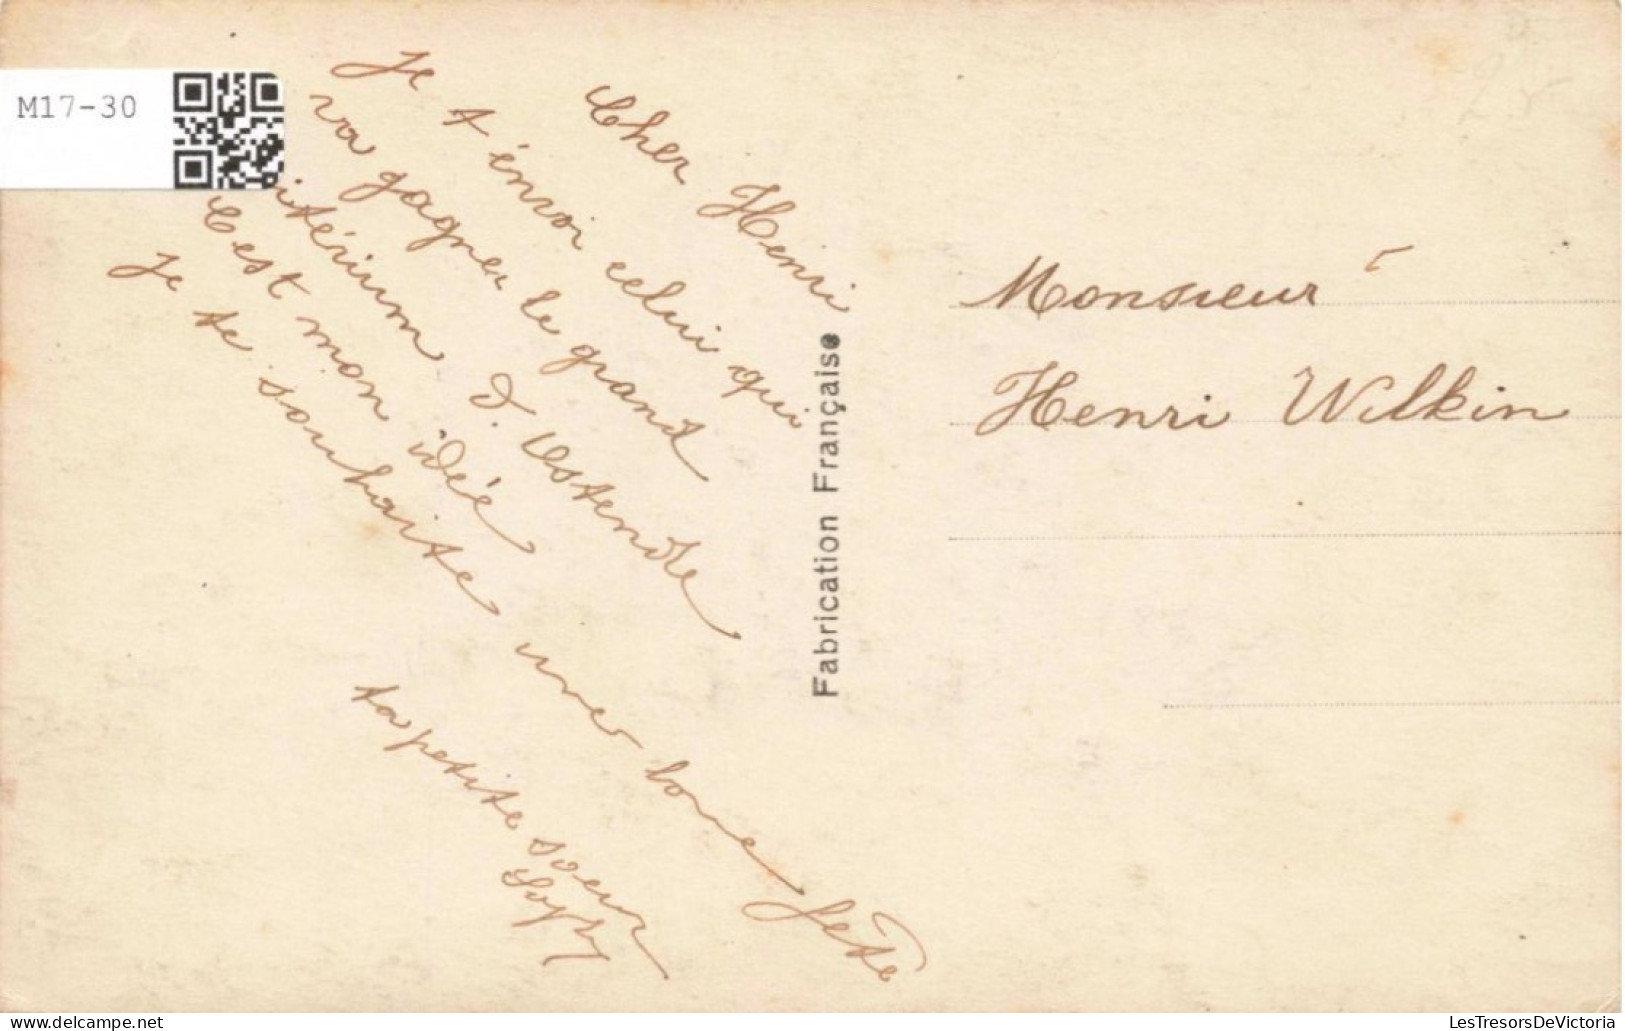 M17-30
Cher Henri
Je t'énvoi celui qui
va gagner le grand
itérium d. Ostende
C'est mon idéé
Je te souhaite une bonne fête
ta petite soeur
Fabrication Française
Monsieur
Henri Wilkin
LesTresorsDeVictoria
delcampe.net